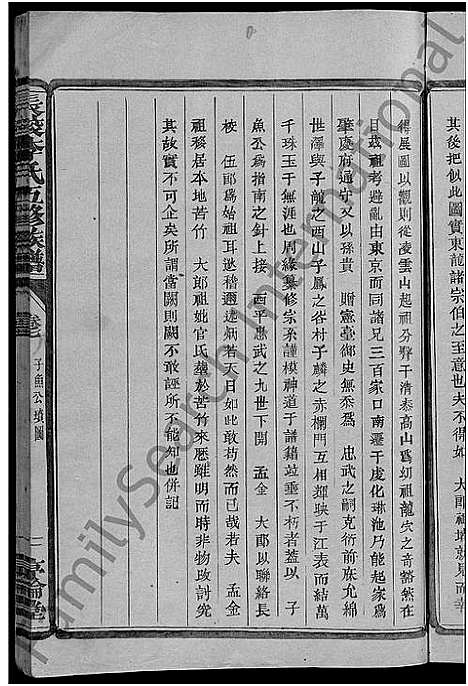 其後把似此圖實東龍諸宗伯之至意也夫不得如 大郎祖墳就見而幸
得展圖以觀則從凌雲山起祖分臂于清泰高山爲幼祖龍穴之奇豁然在
目玆祖考避亂由東京而同諸兄三百家口南遷于虔化琳池乃能起家爲
肇慶府通守又以孫貴 贈憲臺御史無忝爲 忠武之嗣克衍前庥允綿
世澤與子敵之西山子鳳之谷村子麟之赤欄門互相輝映于江表而結萬
千珠玉于無涯也周緣纂修宗系謹模神道于譜籍並垂不朽者蓋以 子
魚公爲指南之針上接 西平忠武之九世下開 孟金 大郎以聯絡長
校 伍郎爲始祖耳遂稽遡述炳若天日如此敢苟然而已哉若夫 孟金
祖移居本地苦竹 大郎祖妣官氏葬於苦竹來歷雖明而時非物改討究
其故實不可企矣所謂當闕則闕不敢誣所不能知也併記
氏五修族譜
卷七
子魚公墳圖
二
敦倫堂
FamilySearch International